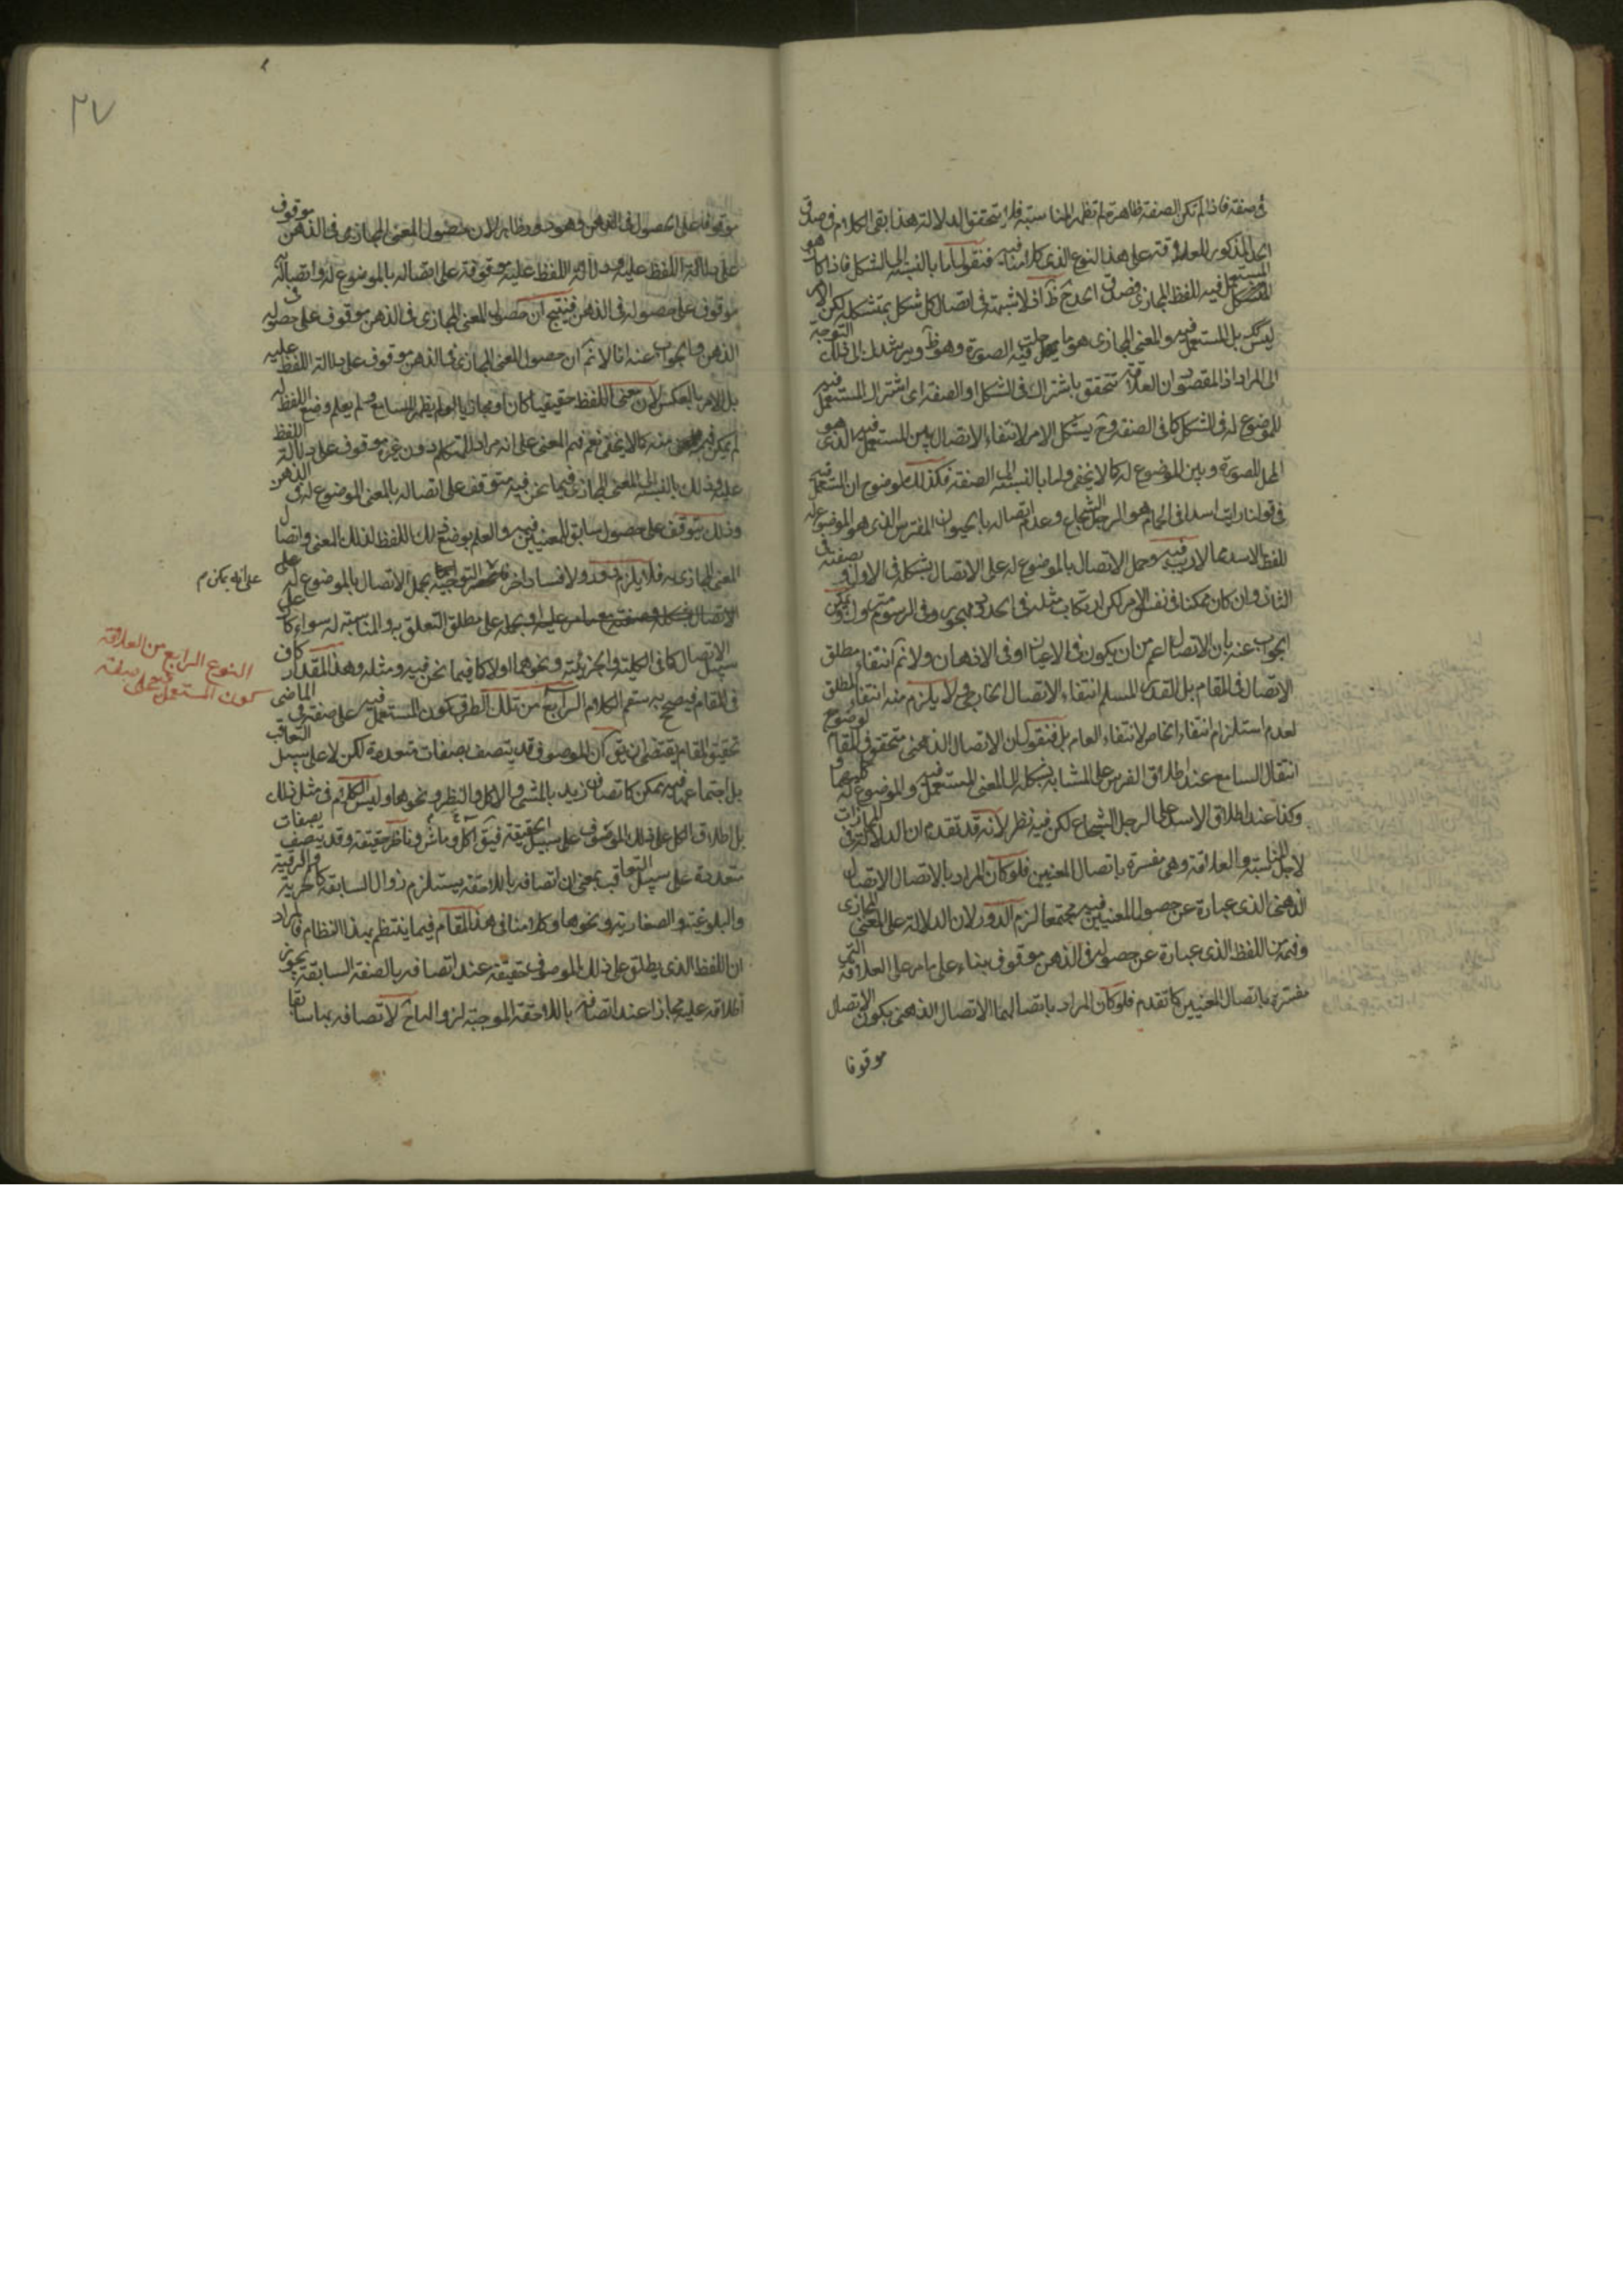 في صفته فاذا لم تكن الصفة ظاهرة لم تظهر المناسبة فلا يتحقق الدلالة هذا بقي الكلام في صدق
الحد المذكور للعلاقة على هذا النوع الذي كلامنا فيه فنقول اما بالنسبة الى الشكل فاذا كان هو
المتشكل المستعمل فيه اللفظ المجازي فصدق الحد ح ظ اذ لا شبهة في اتصال كل شكل بمتشكله لكن الامر
ليس كك بل المستعمل فيه والمعنى المجازي هو ما حلت فيه الصورة وهو ظ ويرشدك الى ذلك التوجه
الى المراد اذ المقصود ان العلاقة تتحقق باشتراك في الشكل او الصفة اى اشتراك المستعمل فيه
للموضوع له في الشكل كما في الصفة وح يشكل الامر لانتفاء الاتصال بين المستعمل فيه الذى هو
المحل للصورة وبين الموضوع له كما لا يخفى واما بالنسبة الى الصفة فكذلك لوضوح ان المستعمل فيه
في قولنا رايت اسدا في الحمام هو الرجل الشجاع وعدم اتصاله بالحيوان المفترس الذى هو الموضوع له
للفظ الاسد مما لا ريب فيه وحمل الاتصال بالموضوع له على الاتصال بشكله في الاول وبصفته في
الثاني وان كان ممكنا في نفس الامر لكن ارتكاب مثله في الحدود مهجور وفي الرسوم متروك ويمكن
الجواب عنه بان الاتصال اعم من ان يكون في الاعيان او في الاذهان ولا نم انتفاء مطلق
الاتصال في المقام بل القدر المسلم انتفاء الاتصال الخارجي ولا يلزم منه انتفاء المطلق
لعدم استلزام انتفاء الخاص لانتفاء العام بل فنقول ان الاتصال الذهنى متحقق في المقام لوضوح
انتقال السامع عند اطلاق الفرس على المشابه بشكله الى المعنى المستعمل فيه والموضوع له كليهما
وكذا عند اطلاق الاسد على الرجل الشجاع لكن فيه نظر لانه قد تقدم ان الدلالة في المجازات
لاجل المناسبة والعلاقة وهى مفسرة باتصال المعنيين فلو كان المراد بالاتصال الاتصال
الذهنى الذى عبارة عن حصول المعنيين فيه مجتمعا لزم الدور لان الدلالة على المعنى المجازى
وفهمه من اللفظ الذى عبارة عن حصوله في الذهن موقوف بناء على ما مر على العلاقة التى
مفسرة باتصال المعنيين كما تقدم فلو كان المراد باتصالهما الاتصال الذهنى يكون الاتصال
موقوفا
٢٧
موقوفا على الحصول في الذهن وهو دور ظاهر لان حصول المعنى المجازى في الذهن موقوف
على دلالة اللفظ عليه ودلالة اللفظ عليه موقوفة على اتصاله بالموضوع له واتصاله
موقوف على حصوله في الذهن فينتج ان حصول المعنى المجازى في الذهن موقوف على حصوله في
الذهن والجواب عنه انا لا نم ان حصول المعنى المجازى في الذهن موقوف على دلالة اللفظ عليه
بل الامر بالعكس لان معنى اللفظ حقيقيا كان او مجازيا لم يظهر للسامع ولم يعلم وضع اللفظ له
لم يمكن فهمه منه كما لا يخفى نعم فهم المعنى على انه مراد للمتكلم دون غيره موقوف على دلالة اللفظ
عليه وذلك بالنسبة الى المعنى المجازى فيما نحن فيه متوقف على اتصاله بالمعنى الموضوع له في الذهن
وذلك يتوقف على حصول سابق للمعنيين فيه والعلم بوضع ذلك اللفظ لذلك المعنى واتصال
المعنى المجازى به فلا يلزم دور ولا فساد اخر التوجيه بحمل الاتصال بالموضوع له على
الاتصال بشكله وصفته مع ما مر عليه او بحمله على مطلق التعلق به والمناسبة له سواء كان على
سبيل الاتصال كما في الكلية والجزئية ونحوهما اولا كما فيما نحن فيه ومثله وهذا المقدار كاف
في المقام فيصح به ستم الكلام الرابع من تلك الطرق كون المستعمل فيه على صفة في الماضى
تحقيق المقام يقتضى ان يق ان الموصوف قد يتصف بصفات متعددة لكن لا على سبيل التعاقب
بل اجتماعها فيه ممكن كاتصاف زيد بالمشى والاكل والنظر ونحوها وليس الكلام في مثل ذلك
بل اطلاق الكل على ذلك الموصوف على سبيل الحقيقة فيق آكل وماش وناظر حقيقة وقد يتصف بصفات
متعددة على سبيل التعاقب بمعنى ان اتصافه باللاحقة يستلزم زوال السابقة كالحرية والرقية
والبلوغية والصغارية ونحوها وكلامنا في هذا المقام فيما ينتظم بهذا النظام فالمراد
ان اللفظ الذى يطلق على ذلك الموصوف حقيقة عند اتصافه بالصفة السابقة يجوز
اطلاقه عليه مجازا عند اتصافه باللاحقة الموجبة لزوالها لاتصافه بها سابقا
على انه يمكن م
النوع الرابع من العلاقة
كون المستعمل فيه على صفة